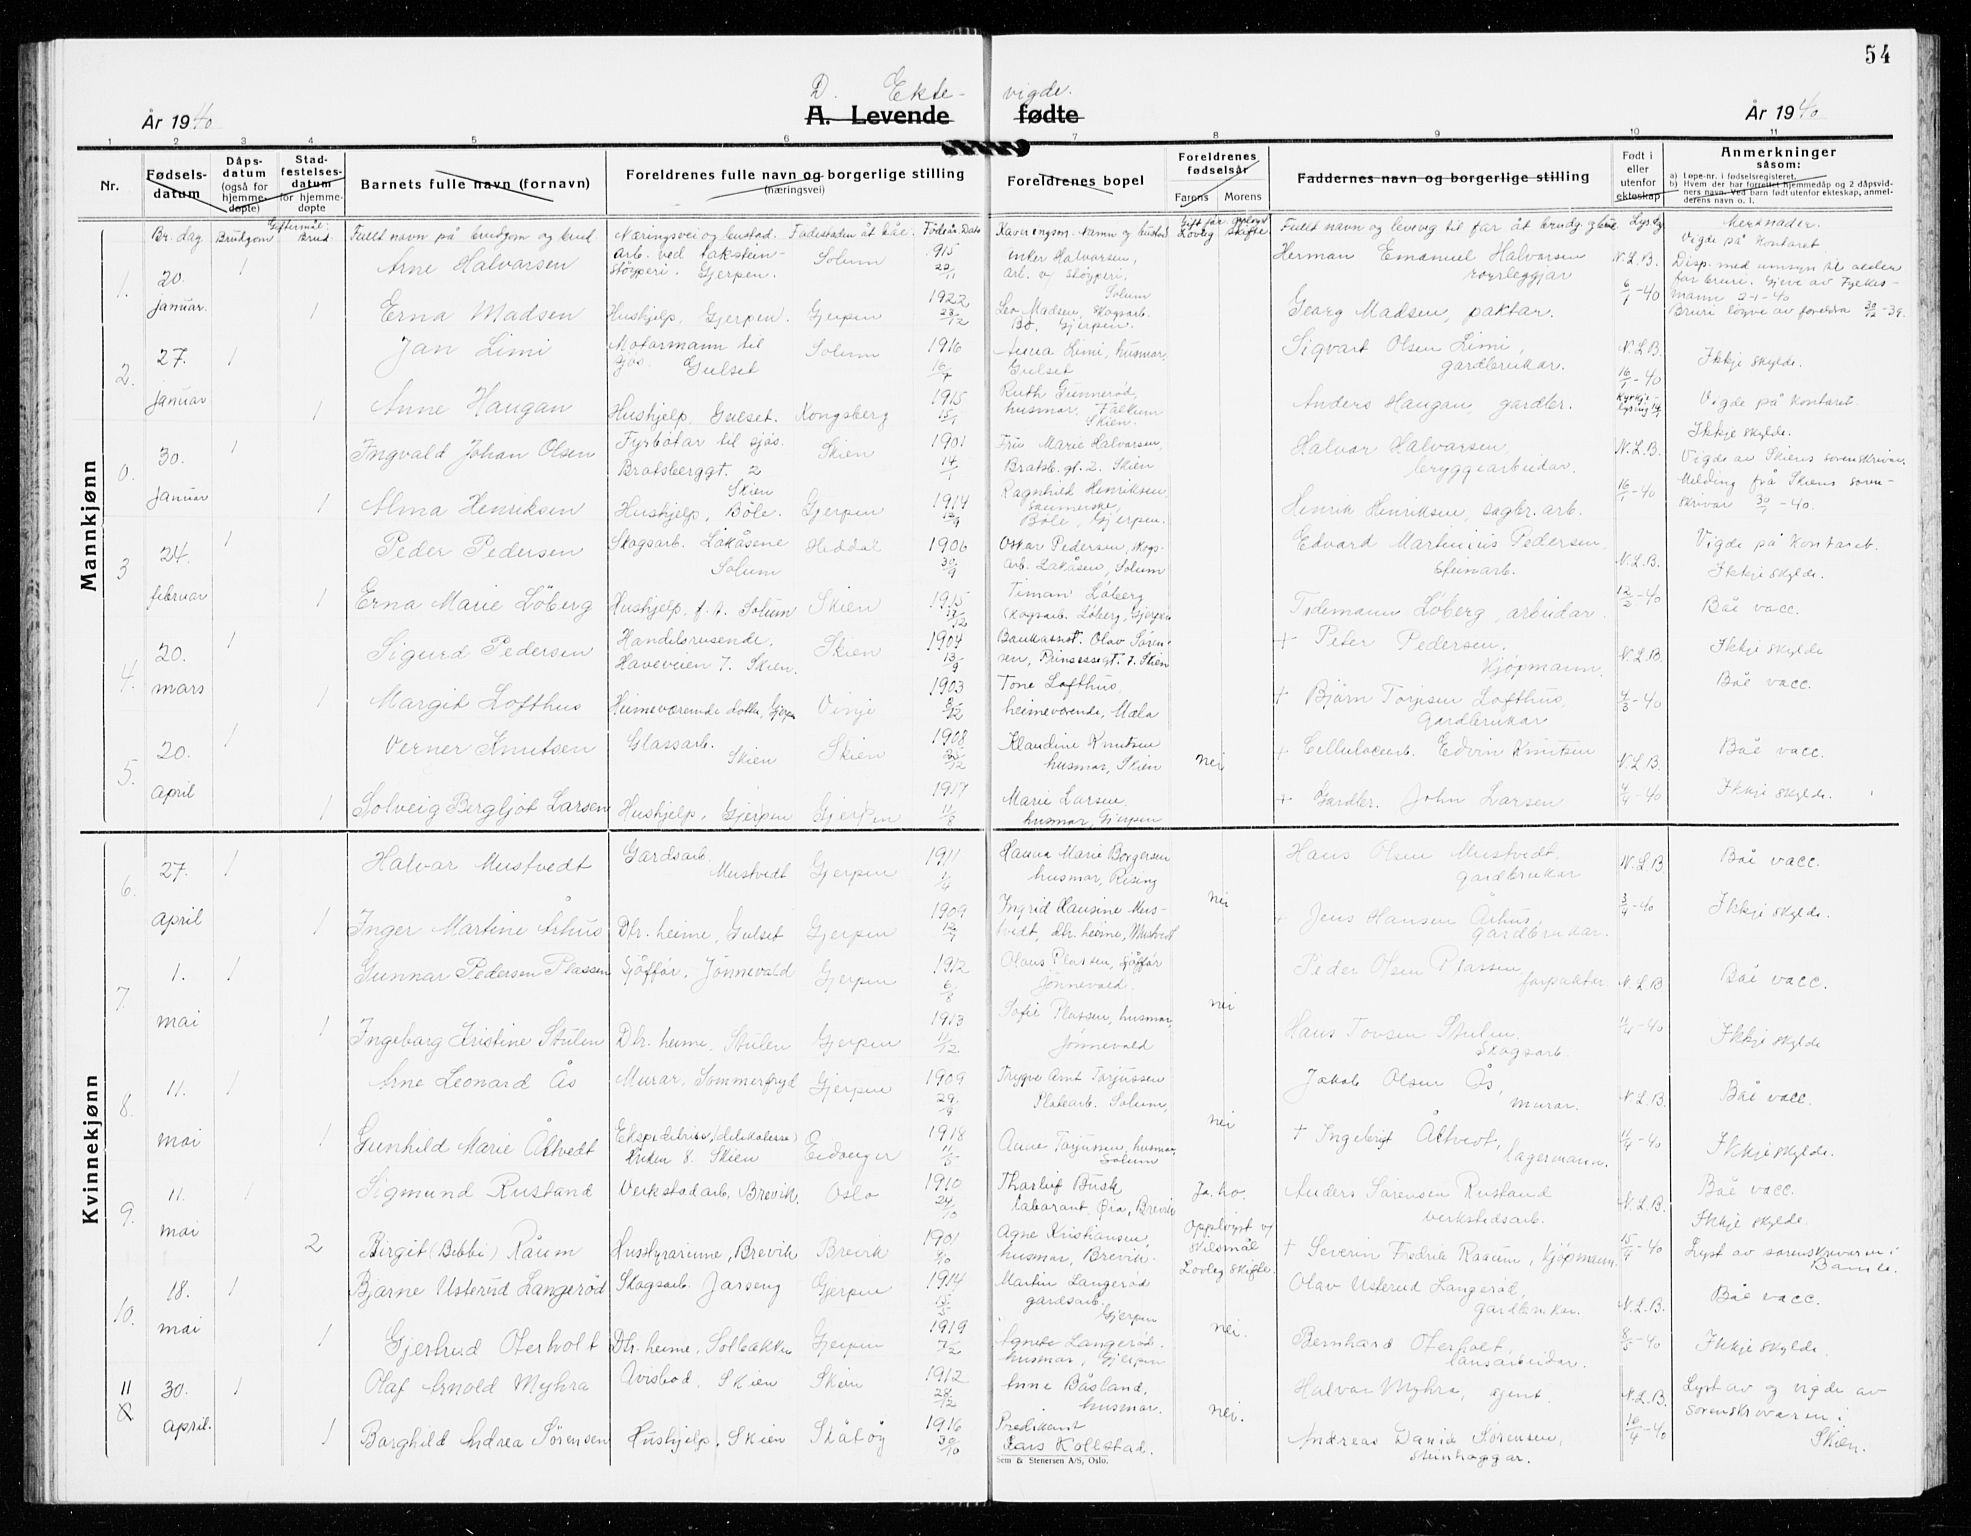 54
D. Ekte- vigde.
År 1940
A. Levende fødte
År 1940
1 2 3 4 5 6 7 8 9 10 11
Nr.
Fødsels-datum
Dåps-datum (også for hjemme-døpte)
Stad-festelses-datum for hjemme-døpte
Barnets fulle navn (fornavn)
Foreldrenes fulle navn og borgerlige stilling (næringsvei)
Foreldrenes bopel
Foreldrenes fødselsår
Farens Morens
Faddernes navn og borgerlige stilling
Født i eller utenfor ekteskap
Anmerkninger såsom:
a) Løpe-nr. i fødselsregisteret.
b) Hvem der har forrettet hjemmedåp og 2 dåpsvidners navn. Ved barn født utenfor ekteskap, anmelderens navn o. l.
Br. dag Giftermål: Brudgom Brud. Fullt navn på brudgom og brud. Næringsvei og bustad. Fødestaden åt båe. Fødeår Dato
Fullt navn og leveveg til far åt brudg. og brur Lysing Merknader.
Mannkjønn
1. 20. januar. 1 Arne Halvarsen arb. ved takstein-støyperi. Gjerpen. Solum 915 22/11
Halvarsen, arb. v/ støyperi, Solum Herman Emanuel Halvarsen rørleggjar N.L.B. 6/1-40 Vigde på kontoret
Disp. med umsyn til alder for brure. Gjeve av Fylkes-mann 2-1-40
Bruri løyve av foreldra 30/12-39.
1 Erna Madsen Hushjelp, Gjerpen. Gjerpen 1922 23/12
Leo Madsen, skogsarb. Bø, Gjerpen. Georg Madsen, paktar.
2. 27. januar 1 Jan Limi Motormann til sjøs. Gulset Solum 1916 16/7
Anna Limi, husmor, Gulset Sigvart Olsen Limi, gardbrukar. N.L.B. 16/1-40 Ikkje skylde.
1 Anne Haugan Hushjelp, Gulset. Kongsberg 1915 15/1
Ruth Gunnerød, husmor, Falkum Skien. Anders Haugan, gardbr. Kyrkje-lysing 14/1 Vigde på kontoret.
0. 30. januar 1 Ingvald Johan Olsen Fyrbøtar til sjøs. Bratsberggt. 2 Skien Skien 1901 14/1
Fru Marie Halvarsen, Bratsb.gt. 2. Skien Halvar Halvarsen, bryggearbeidar. N.L.B. 16/1-40 Ikkje skylde.
Vigde av Skiens sorenskrivar.
Melding frå Skiens soren-skrivar 30/1-40.
1 Alma Henriksen Hushjelp, Bøle. Gjerpen 1914 13/9
Ragnhild Henriksen, Bøle, Gjerpen. Henrik Henriksen, sagbr. arb.
3 24. februar 1 Peder Pedersen Skogsarb. Løkåsene Solum Heddal 1906 30/9
Oskar Pedersen, skogs-arb. Løkåsen, Solum Edvard Martinius Pedersen, steinarb. N.L.B. 12/2-40 Vigde på kontoret.
Ikkje skylde.
1 Erna Marie Løberg Hushjelp, f. t. Solum Skien 1915 17/12
Timan Løberg skogsarb. Løberg, Gjerpen Tidemann Løberg, arbeidar. Båe vacc.
4. 20. mars 1 Sigurd Pedersen Handelsreisende. Haveveien 7. Skien. Skien 1904 13/9
Bankassist. Olav Søren-sen, Prinsessegt. 7. Skien + Peter Pedersen. Kjøpmann. N.L.B. 7/3-40 Ikkje skylde
1 Margit Lofthus Heimeværende dotter, Gjerpen Vinje 1903 8/12
Tone Lofthus, heimeværende, Mæla + Bjørn Torjesen Lofthus, Gardbrukar Båe vacc.
5. 20. april 1 Verner Knutsen Glassarb. Skien Skien 1908 2/12
Klaudine Knutsen husmor, Skien nei + Cellulosearb. Edvin Knutsen N.L.B. 4/4-40 Båe vacc.
1 Solveig Bergljot Larsen Hushjelp, Gjerpen Gjerpen 1917 11/6
Marie Larsen. husmor, Gjerpen + Gardbr. John Larsen Ikkje skylde.
Kvinnekjønn
6. 27. april 1 Halvar Mustvedt Gardsarb. Mustvedt Gjerpen 1911 1/4
Hanna Marie Borgersen husmor, Rising nei Hans Olsen Mustvedt. gardbrukar N.L.B 3/4-40 Båe vacc.
1 Inger Martine Århus Dtr. heime, Gulset Gjerpen 1909 12/7
Ingrid Hansine Mus-tvedt, dtr. heime, Mustvedt Jens Hansen Århus, gardbrukar. Ikkje skylde.
7. 1. mai 1 Gunnar Pedersen Plassen Sjåffør. Jønnevald Gjerpen 1912 6/8
Olaus Plassen, sjåffør Jønnevald. nei Peder Olsen Plassen, forpakter. N.L.B 11/4-40 Båe vacc.
1 Ingebarg Kristine Stulen Dtr. heime. Stulen Gjerpen 1913 11/12
Sofie Plassen, husmor, Jønnevald Hans Tovsen Stulen. Skogsarb. Ikkje skylde
8. 11. mai 1 Arne Leonard Ås Murar. Sommerfryd Gjerpen 1909 29/9
Trygve Arnt Torjussen Platearb. Solum, nei Jakob Olsen Ås, murar. N.L.B. 11/4-40 Båe vacc.
1 Gunhild Marie Åltvedt Ekspeditrise, (delikatesse) 8. Skien Eidanger 1918 11/5
Anne Torjussen, husmor, Solum + Ingebrigt Åltvedt, lagermann. Ikkje skylde.
9. 11. mai 1 Sigmund Rustand Verkstadarb, Brevik. Oslo 1910 24/10
Thorluf Busk laborant, Øia, Brevik Ja. ho. Anders Sørensen Rustand verkstedsarb. N.L.B. 15/4-40 Båe vacc.
2 Birgit (Bibbi) Råum Husstyrarinne, Brevik Brevik 1901 4/10
Agne Kristiansen, husmor, Brevik. Oppløyst v/ skilsmål Lovleg skifte. + Severin Fredrik Raaum, kjøpmann. Ikkje skylde.
Lyst av sorenskrivaren i Bamle.
10. 18. mai 1 Bjarne Usterud Langerød Skogsarb. Jarseng Gjerpen 1914 15/5
Martin Langerød gardsarb. Gjerpen nei. Olav Usterud Langerød, gardbrukar. N.L.B. 8/5-40 Båe vacc.
1 Gjertrud Oterholt Dtr. heime, Solbakken Gjerpen 1919 7/2
Agnete Langerød. husmor, Gjerpen Bernhard Oterholt, lausarbeidar. Ikkje skylde.
11 30. april. 1 Olaf Arnold Myhra Avisbod. Skien Skien 1912 28/12
Anne Båsland, husmor. nei. Halvar Myhra, agent. N.L.B 16/4-40 Lyst av og vigde av sorenskrivaren i Skien.
1 Borghild Andrea Sørensen Hushjelp. Skien Skåtøy 1916 30/10
Predikant Lars Kollstad. Andreas David Sørensen, Steinhoggar.
Sem & Stenersen A/S, Oslo.